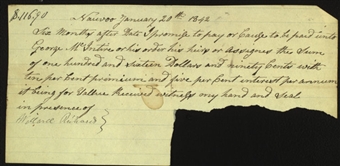 $116.90
Nauvoo January 20th 1842
Six Months after Date I promise to pay or Cause to be paid unto
George McIntire or his order his heirs or Assignes the Sum
of one hundred and Sixteen Dollars and ninety Cents with
ten per Cent primium and five per Cent interest per annum
it being for Vallue Received witness my hand and Seal
in presence of
Willard Richards